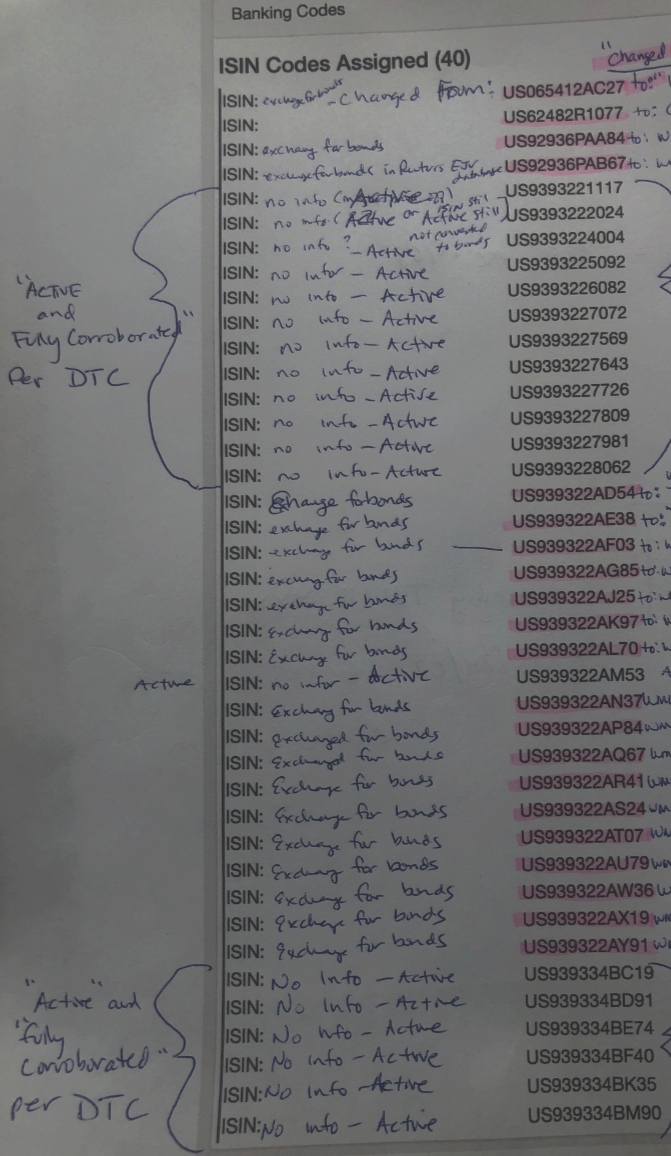 Banking Codes
ISIN Codes Assigned (40) "Changed
ISIN: exchange for bonds - Changed From: US065412AC27 to:
ISIN: US62482R1077 to:
ISIN: exchang for bonds US92936PAA84 to: W
ISIN: exchange for bonds in Reuters EJV database US92936PAB67 to: W
ISIN: no info US9393221117
ISIN: no info (Active or Active still ISIN still US9393222024
ISIN: no info ? - Active not converted to bonds US9393224004
ISIN: no infor - Active US9393225092
ISIN: no info - Active US9393226082
ISIN: no info - Active US9393227072
ISIN: no info - Active US9393227569
ISIN: no info - Active US9393227643
ISIN: no info - Active US9393227726
ISIN: no info - Active US9393227809
ISIN: no info - Active US9393227981
ISIN: no info - Active US9393228062
"ACTIVE
and
Fully Corroborated"
Per DTC
ISIN: Change for bonds US939322AD54 to:
ISIN: exchange for bonds US939322AE38 to:
ISIN: exchange for bonds US939322AF03 to: W
ISIN: exchang for bonds US939322AG85 to: W
ISIN: exchange for bonds US939322AJ25 to: W
ISIN: Exchang for bonds US939322AK97 to: W
ISIN: Exchang for bonds US939322AL70 to: W
Active ISIN: no infor - Active US939322AM53 A
ISIN: Exchang for bonds US939322AN37 WM
ISIN: Exchanged for bonds US939322AP84 WM
ISIN: Exchangd for bonds US939322AQ67 WM
ISIN: Exchange for bonds US939322AR41 WM
ISIN: Exchange for bonds US939322AS24 WM
ISIN: Exchange for bonds US939322AT07 WM
ISIN: Exchang for bonds US939322AU79 WM
ISIN: Exchange for bonds US939322AW36 W
ISIN: Exchange for bonds US939322AX19 WM
ISIN: Exchange for bonds US939322AY91 W
ISIN: No Info - Active US939334BC19
ISIN: No Info - Active US939334BD91
ISIN: No Info - Active US939334BE74
ISIN: No Info - Active US939334BF40
ISIN: No Info - Active US939334BK35
ISIN: No Info - Active US939334BM90
"Active" and
"fully
corroborated"
per DTC